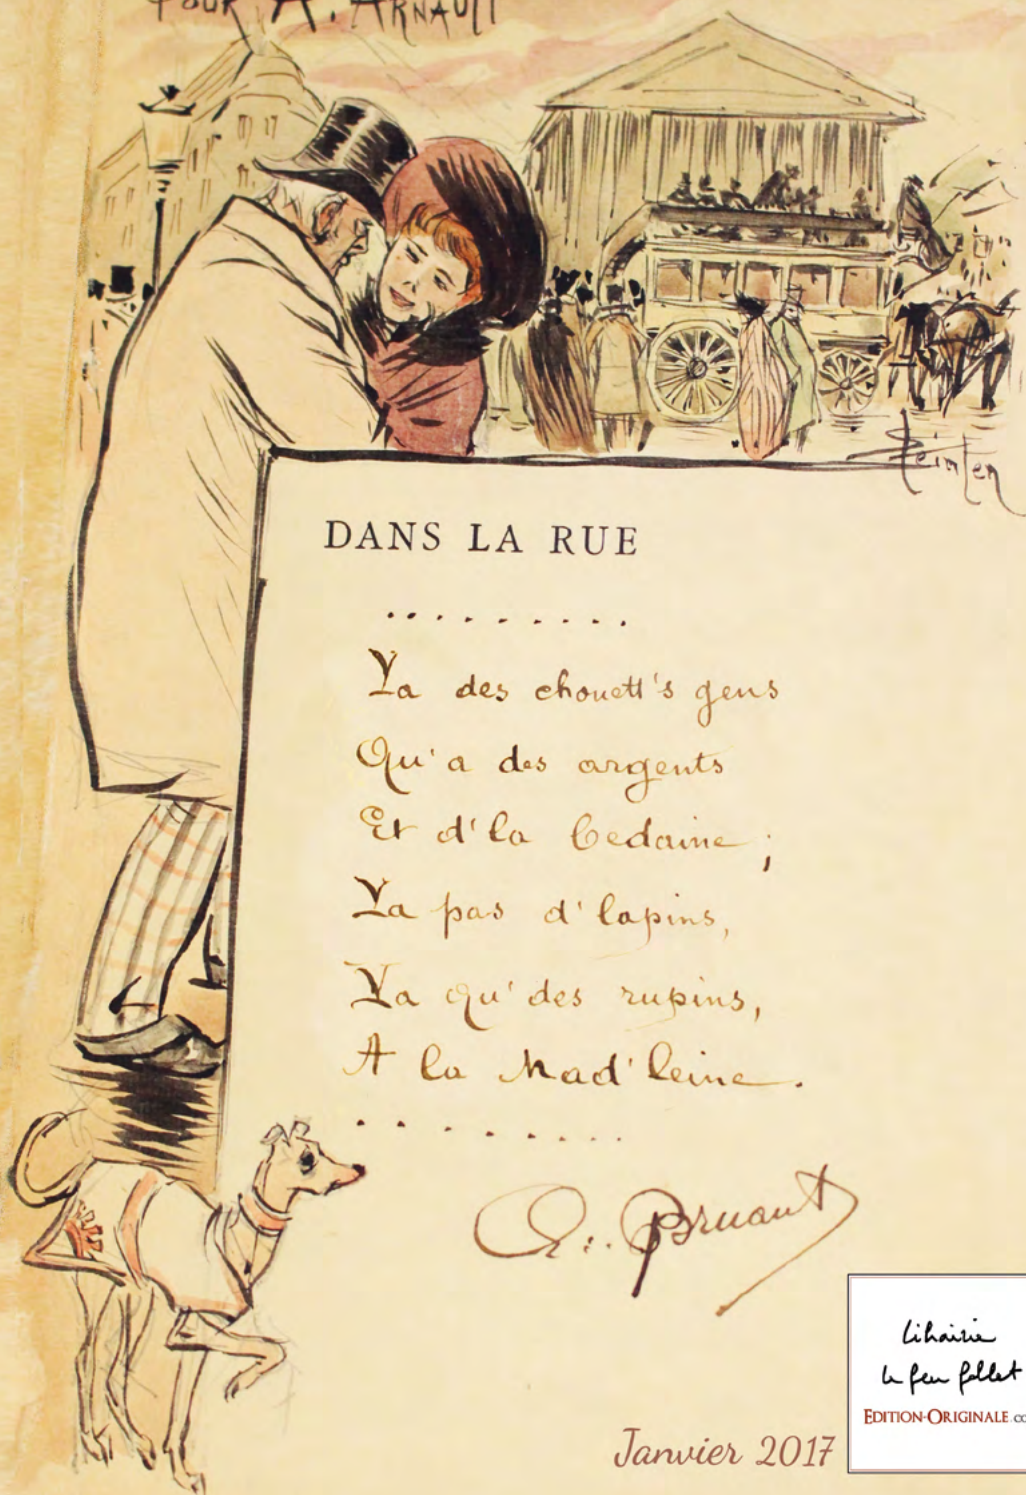 POUR A. ARNAULT
Steinlen
DANS LA RUE
. . . . . . . . . .
Ya des chouett's gens
Qu'a des argents
Et d'la bedaine ;
Ya pas d'lapins,
Ya qu'des rupins,
A la Mad'leine.
. . . . . . . . .
A. Bruant
Librairie
le feu follet
EDITION-ORIGINALE.CO
Janvier 2017